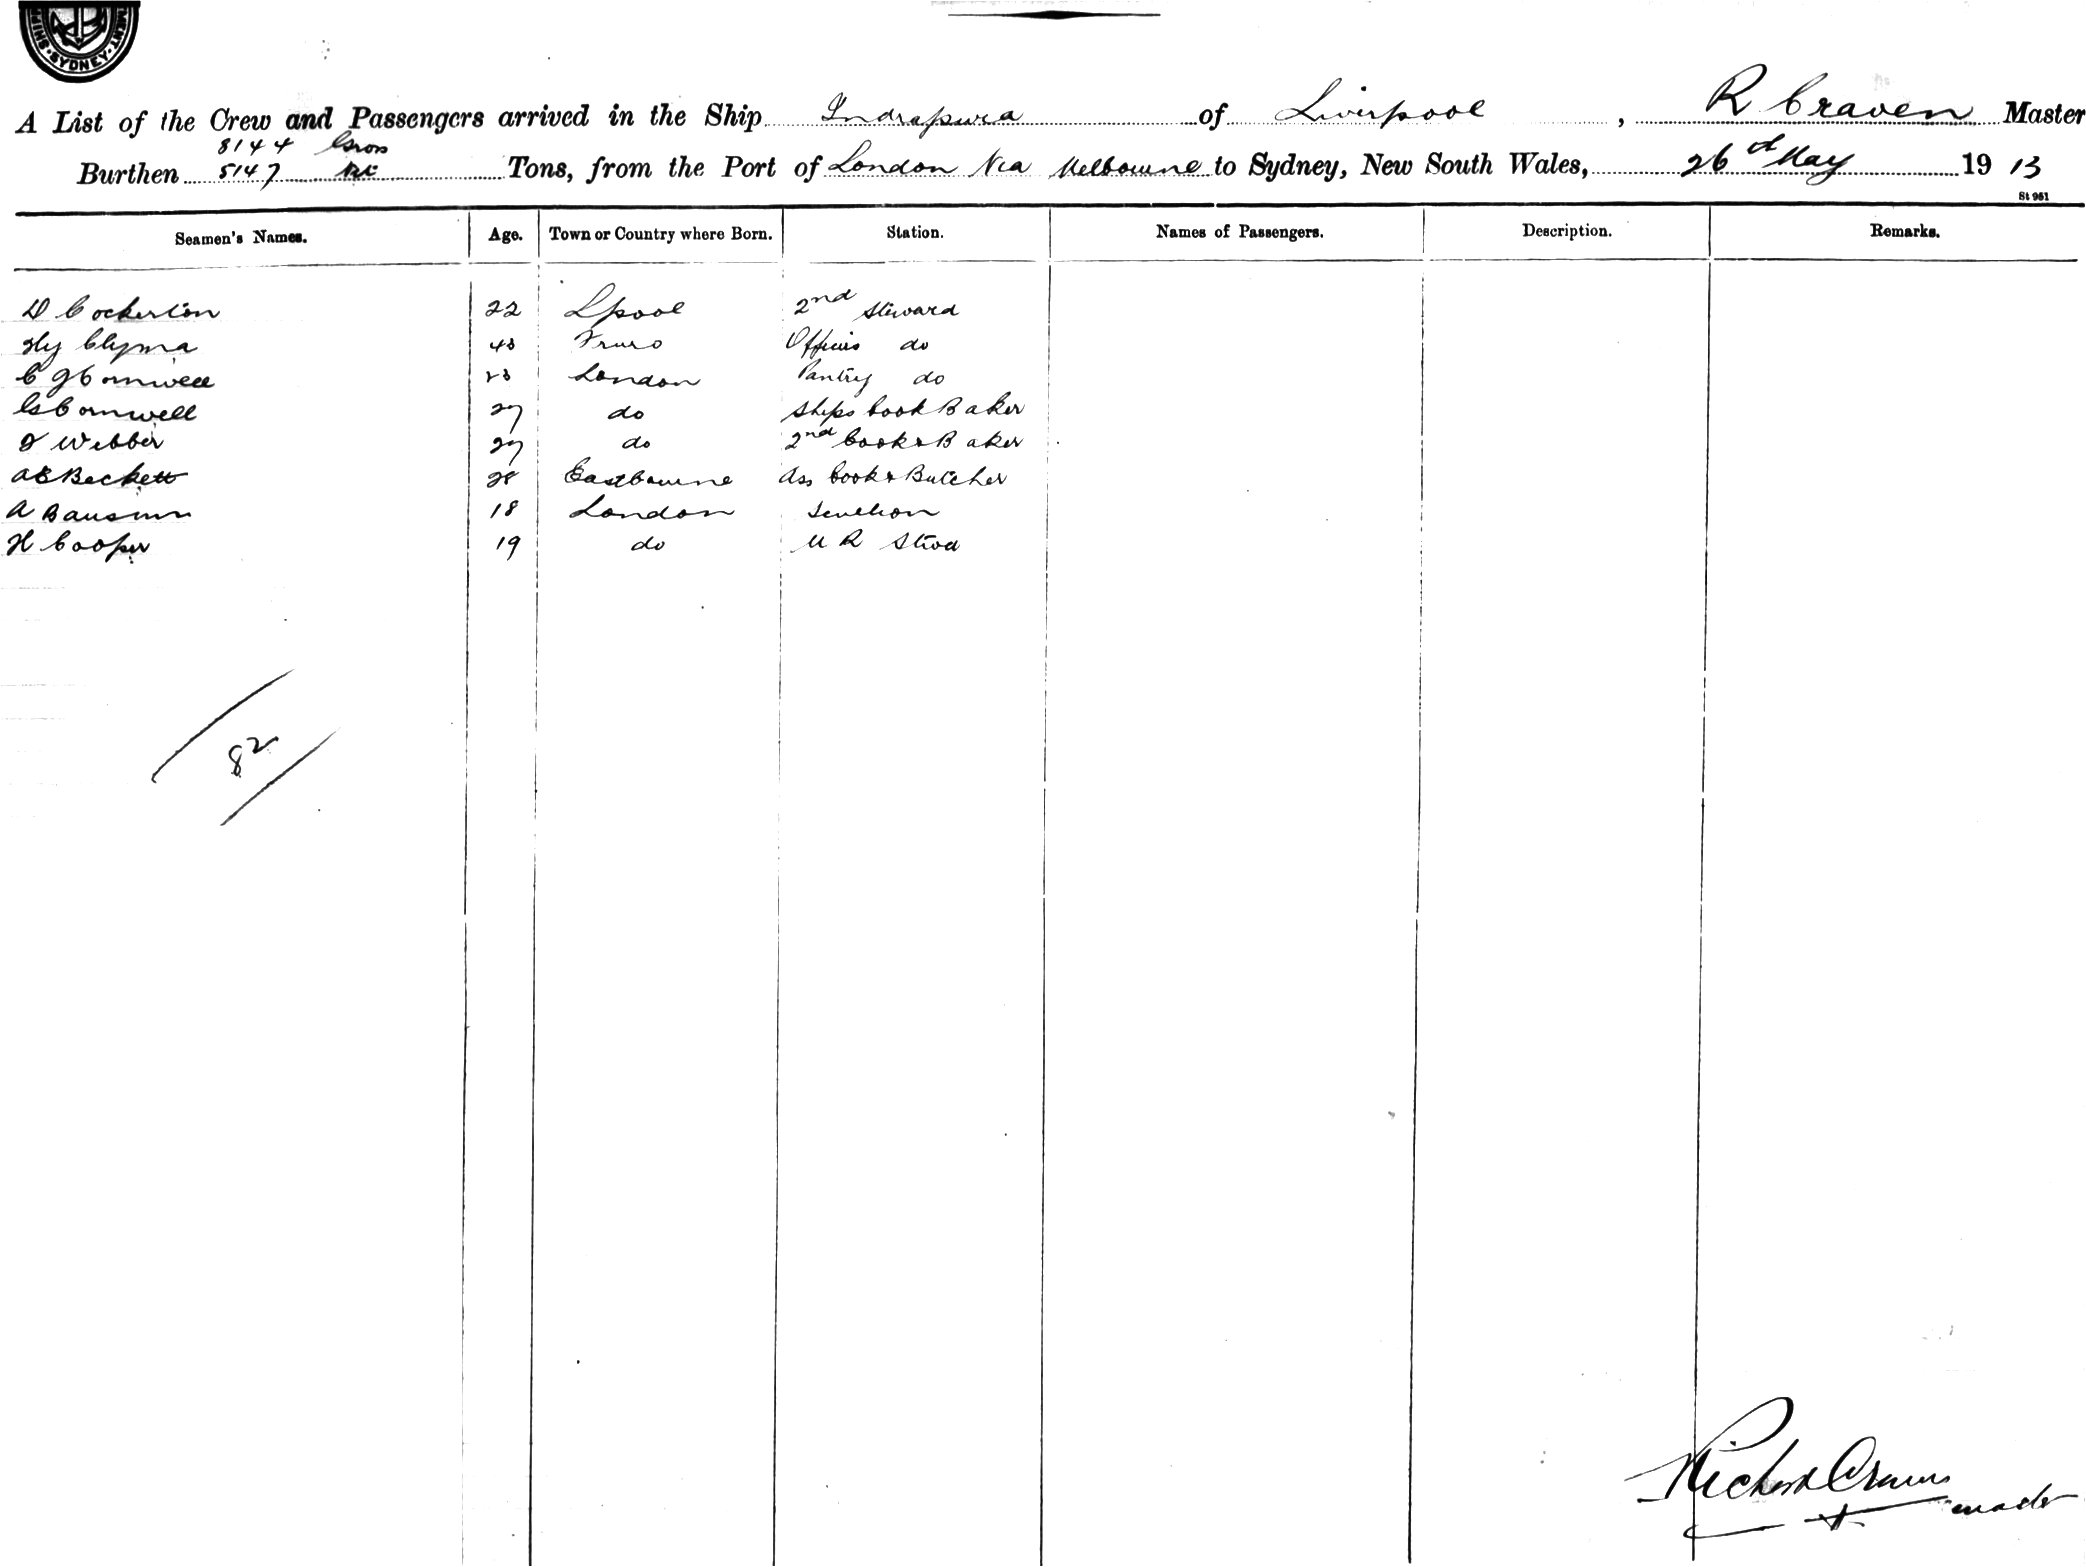 SHIP · SYDNEY · MENT
A List of the Crew and Passengers arrived in the Ship Indrapura of Liverpool, R Craven Master
8144 Gross
Burthen 5147 Tons, from the Port of London Via Melbourne to Sydney, New South Wales, 26th May 1913
St 951
Seamen's Names. Age. Town or Country where Born. Station. Names of Passengers. Description. Remarks.
D Cockerton 22 Lpool 2nd Steward
Hy Clyma 43 Truro Officers do
C J Cornwell 23 London Pantry do
Gs Cornwell 27 do Ships Cook Baker
J Webber 27 do 2nd Cook & Baker
A E Beckett 28 Eastbourne Ass Cook & Butcher
A 18 London Scullion
H Cooper 19 do M R Stwd
82
Richard Craven
master